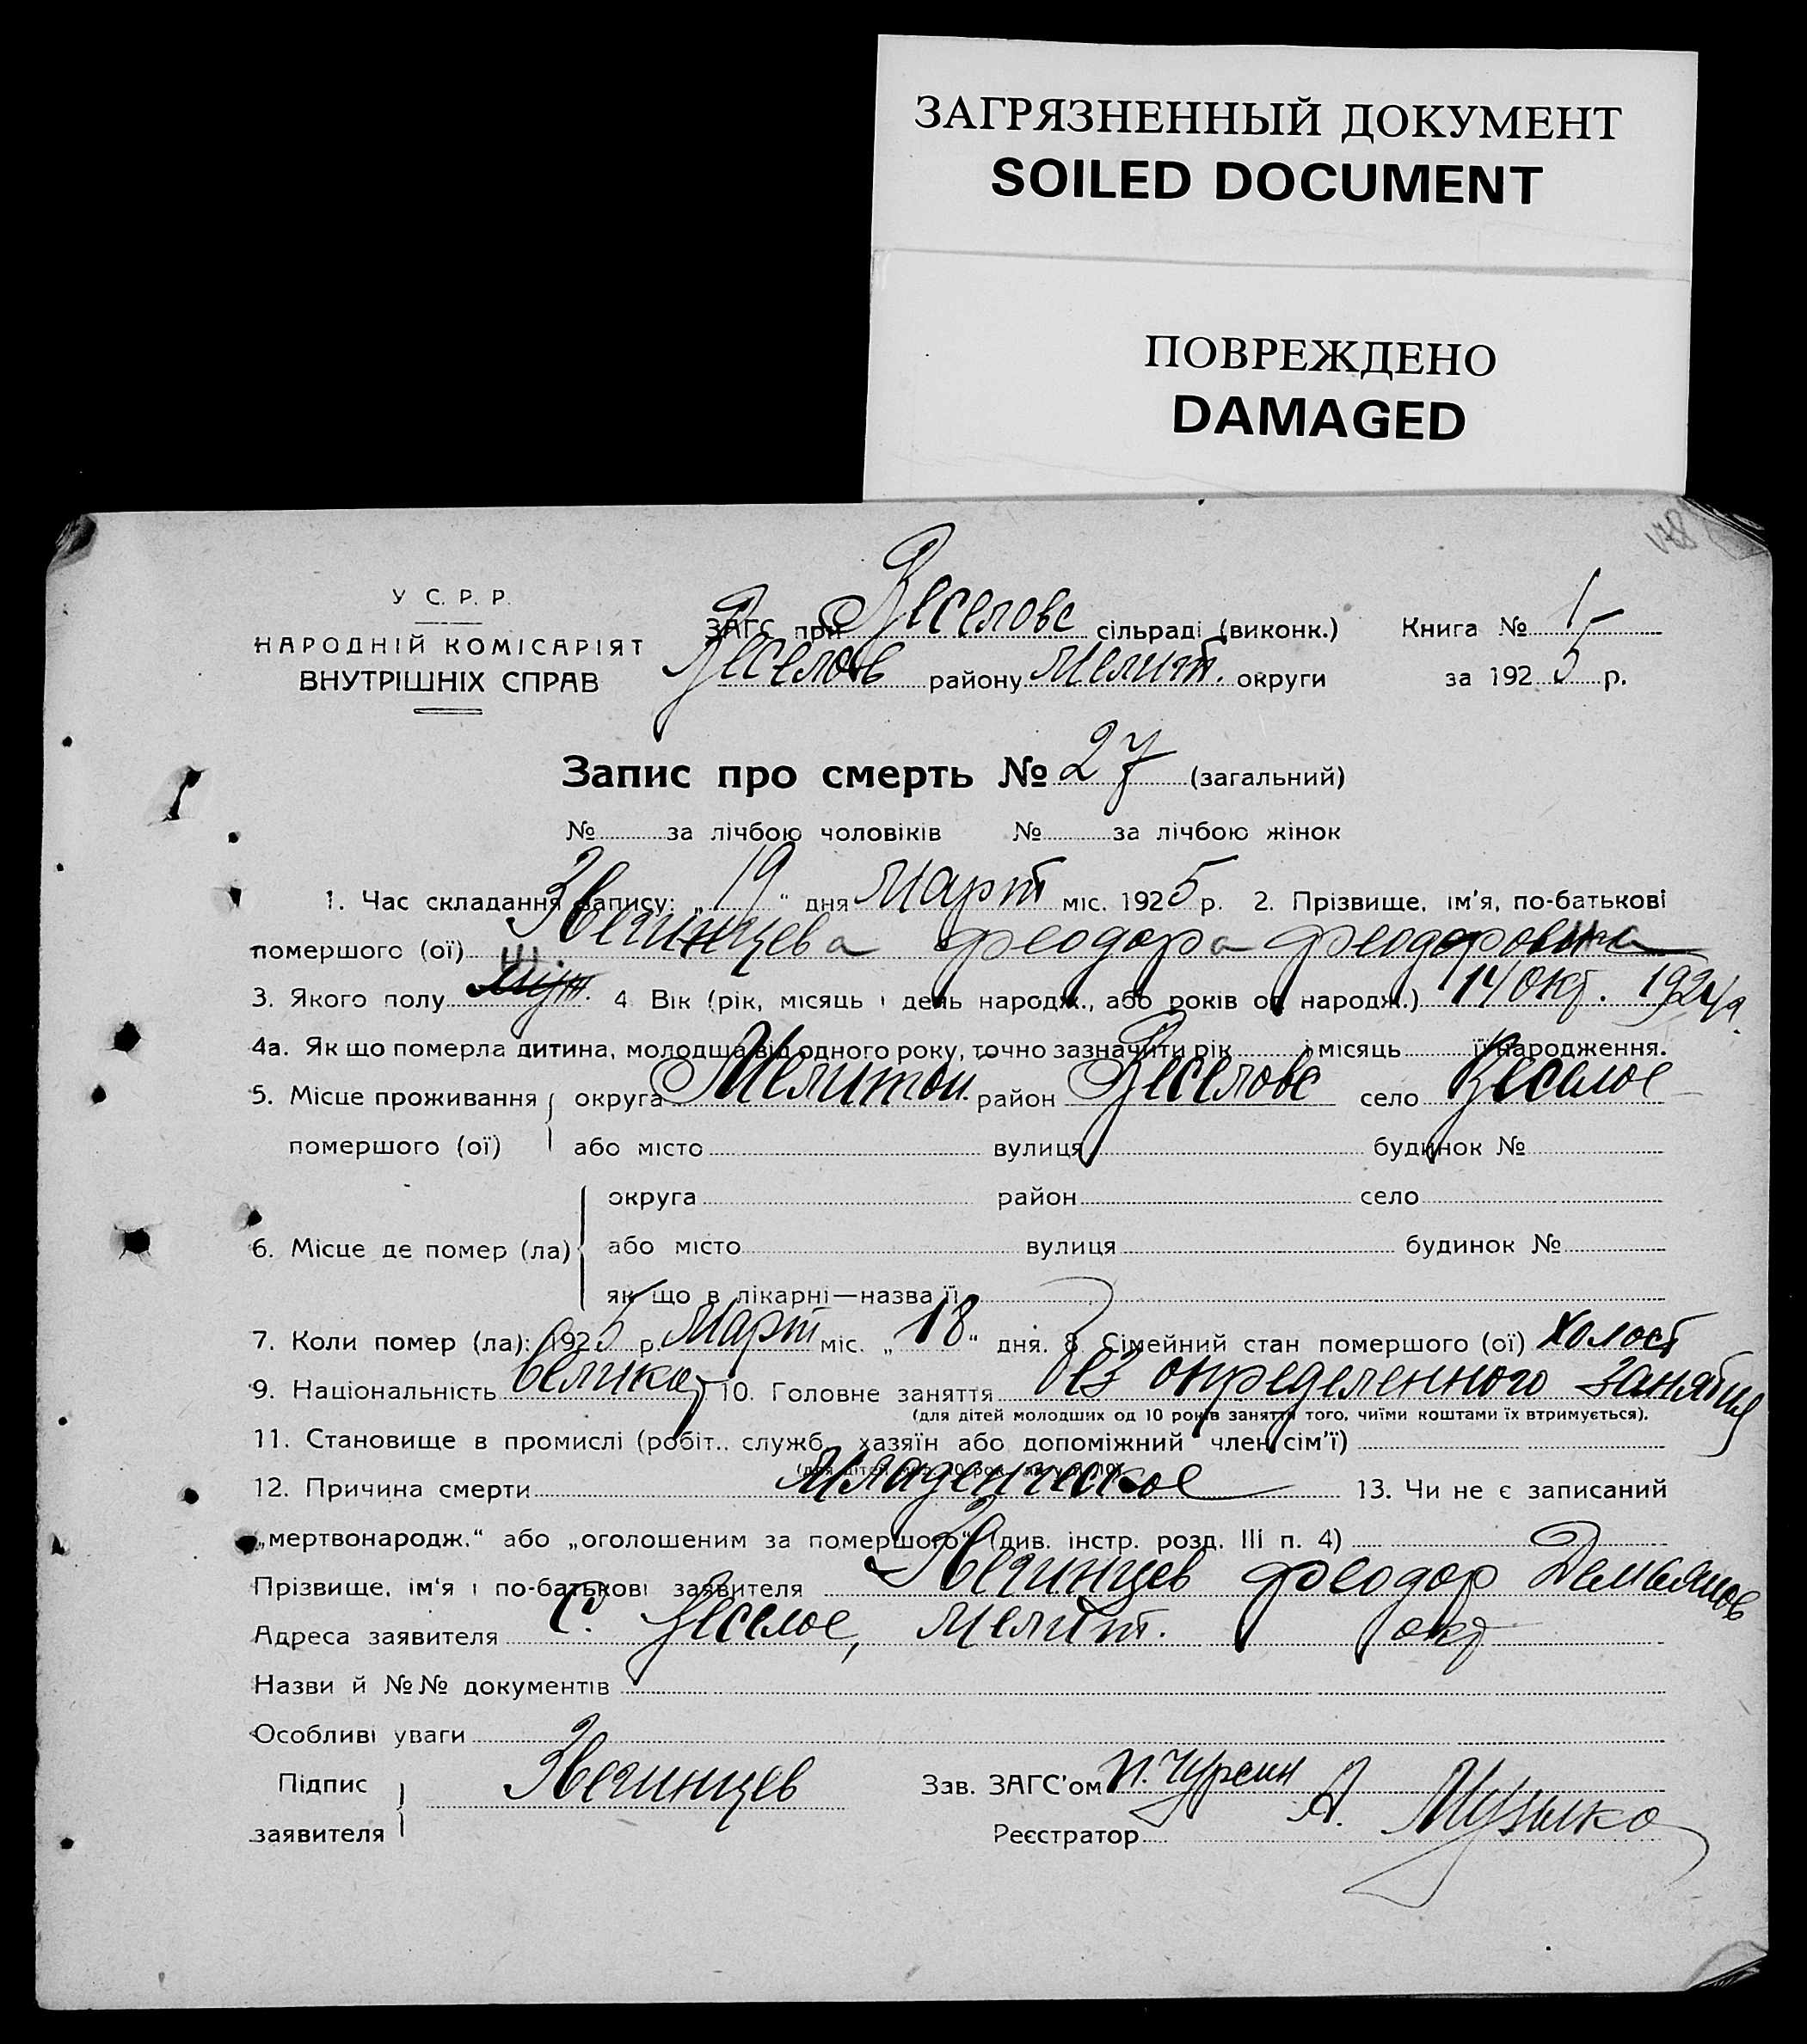 ЗАГРЯЗНЕННЫЙ ДОКУМЕНТ
SOILED DOCUMENT
ПОВРЕЖДЕНО
DAMAGED
178
У С. Р. Р.
НАРОДНІЙ КОМІСАРІЯТ
ВНУТРІШНІХ СПРАВ
ЗАГС при Веселовс сільраді (виконк.) Книга № 1
Веселов району Мелит. округи за 1925 р.
Запис про смерть № 27 (загальний)
№ за лічбою чоловіків № за лічбою жінок
1. Час складання запису: „19“ дня Март міс. 1925 р. 2. Прізвище, ім'я, по-батькові
помершого (ої) Звегинцева Феодора Феодоровича
3. Якого полу муж. 4 Вік (рік, місяць і день народж., або років од народж.) 14 окт. 1924 г.
4а. Як що померла дитина, молодща від одного року, точно зазначити рік і місяць її народження.
5. Місце проживання округа Мелитоп. район Веселовс село Веселое
помершого (ої) або місто вулиця будинок №
округа район село
6. Місце де помер (ла) або місто вулиця будинок №
як що в лікарні—назва її
7. Коли помер (ла): 1925 р. Март міс. „18“ дня. 8 Сімейний стан помершого (ої) холост
9. Національність великор 10. Головне заняття без определенного занятия
(для дітей молодших од 10 років заняття того, чиїми коштами їх втримується).
11. Становище в промислі (робіт., служб., хазяїн або допоміжний член сім'ї)
12. Причина смерти Младенческое 13. Чи не є записаний
„мертвонародж.“ або „оголошеним за помершого“ (див. інстр. розд. III п. 4)
Прізвище, ім'я і по-батькові заявителя Звегинцев Феодор Демьянов
Адреса заявителя С. Веселое, Мелит. окр
Назви й №№ документів
Особливі уваги
Підпис заявителя Звегинцев Зав. ЗАГС'ом П. Чурсин
Реєстратор А. Музыка